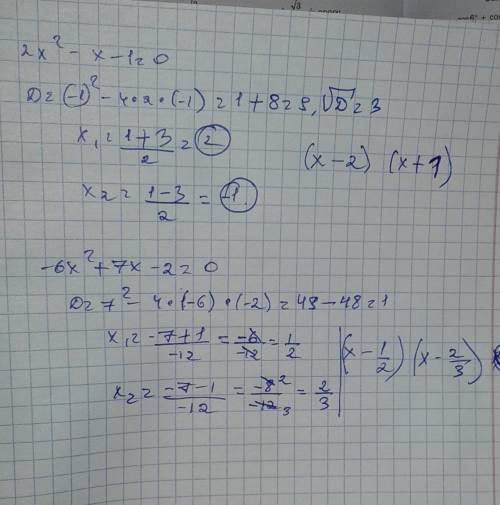 2x² - x - 1 = 0
D = (-1)² - 4·2·(-1) = 1 + 8 = 9, √D = 3
x₁ = (1+3)/2 = 2
(x-2) (x+1)
x₂ = (1-3)/2 = -1.
-6x² + 7x - 2 = 0
D = 7² - 4·(-6)·(-2) = 49 - 48 = 1
x₁ = (-7+1)/(-12) = (-6)/(-12) = 1/2
(x - 1/2) (x - 2/3)
x₂ = (-7-1)/(-12) = (-8)²/(-12)₃ = 2/3